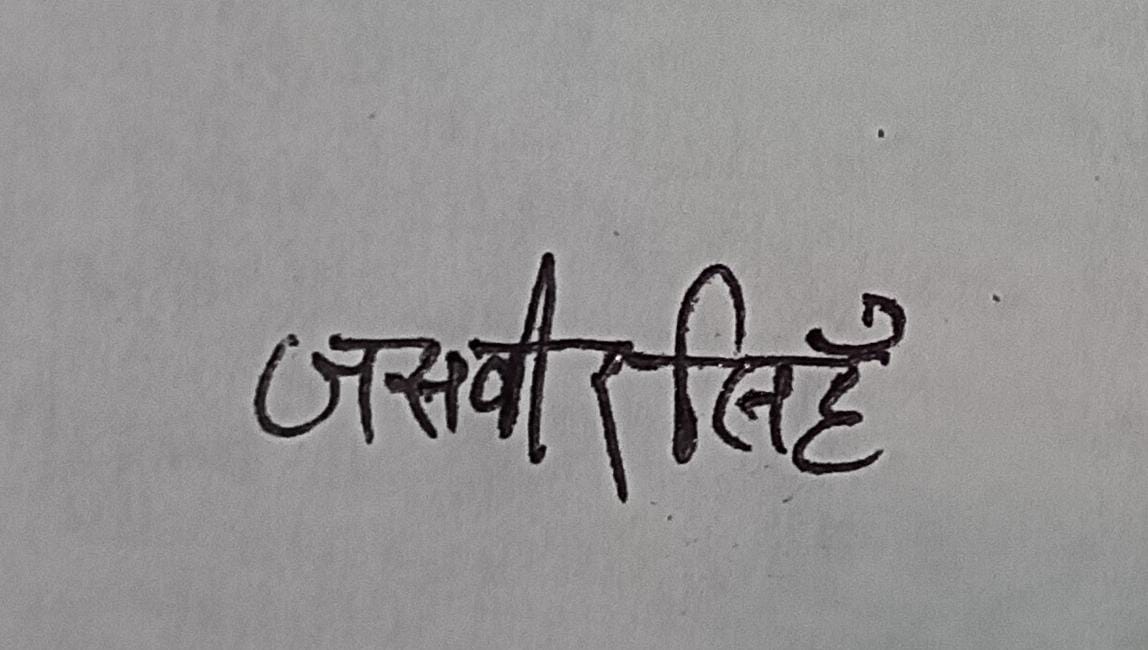 जसवीर सिहँ